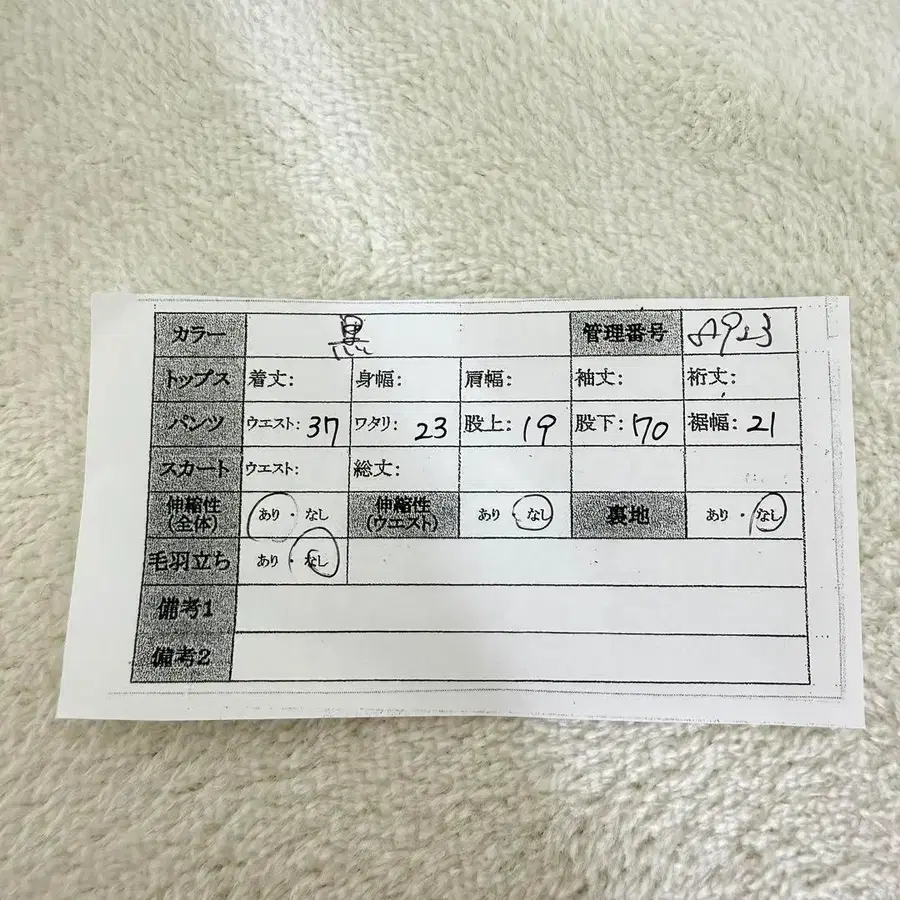 カラー 黒 管理番号 A923
トップス 着丈: 身幅: 肩幅: 袖丈: 裄丈:
パンツ ウエスト: 37 ワタリ: 23 股上: 19 股下: 70 裾幅: 21
スカート ウエスト: 総丈:
伸縮性 (全体) あり・なし 伸縮性 (ウエスト) あり・なし 裏地 あり・なし
毛羽立ち あり・なし
備考1
備考2